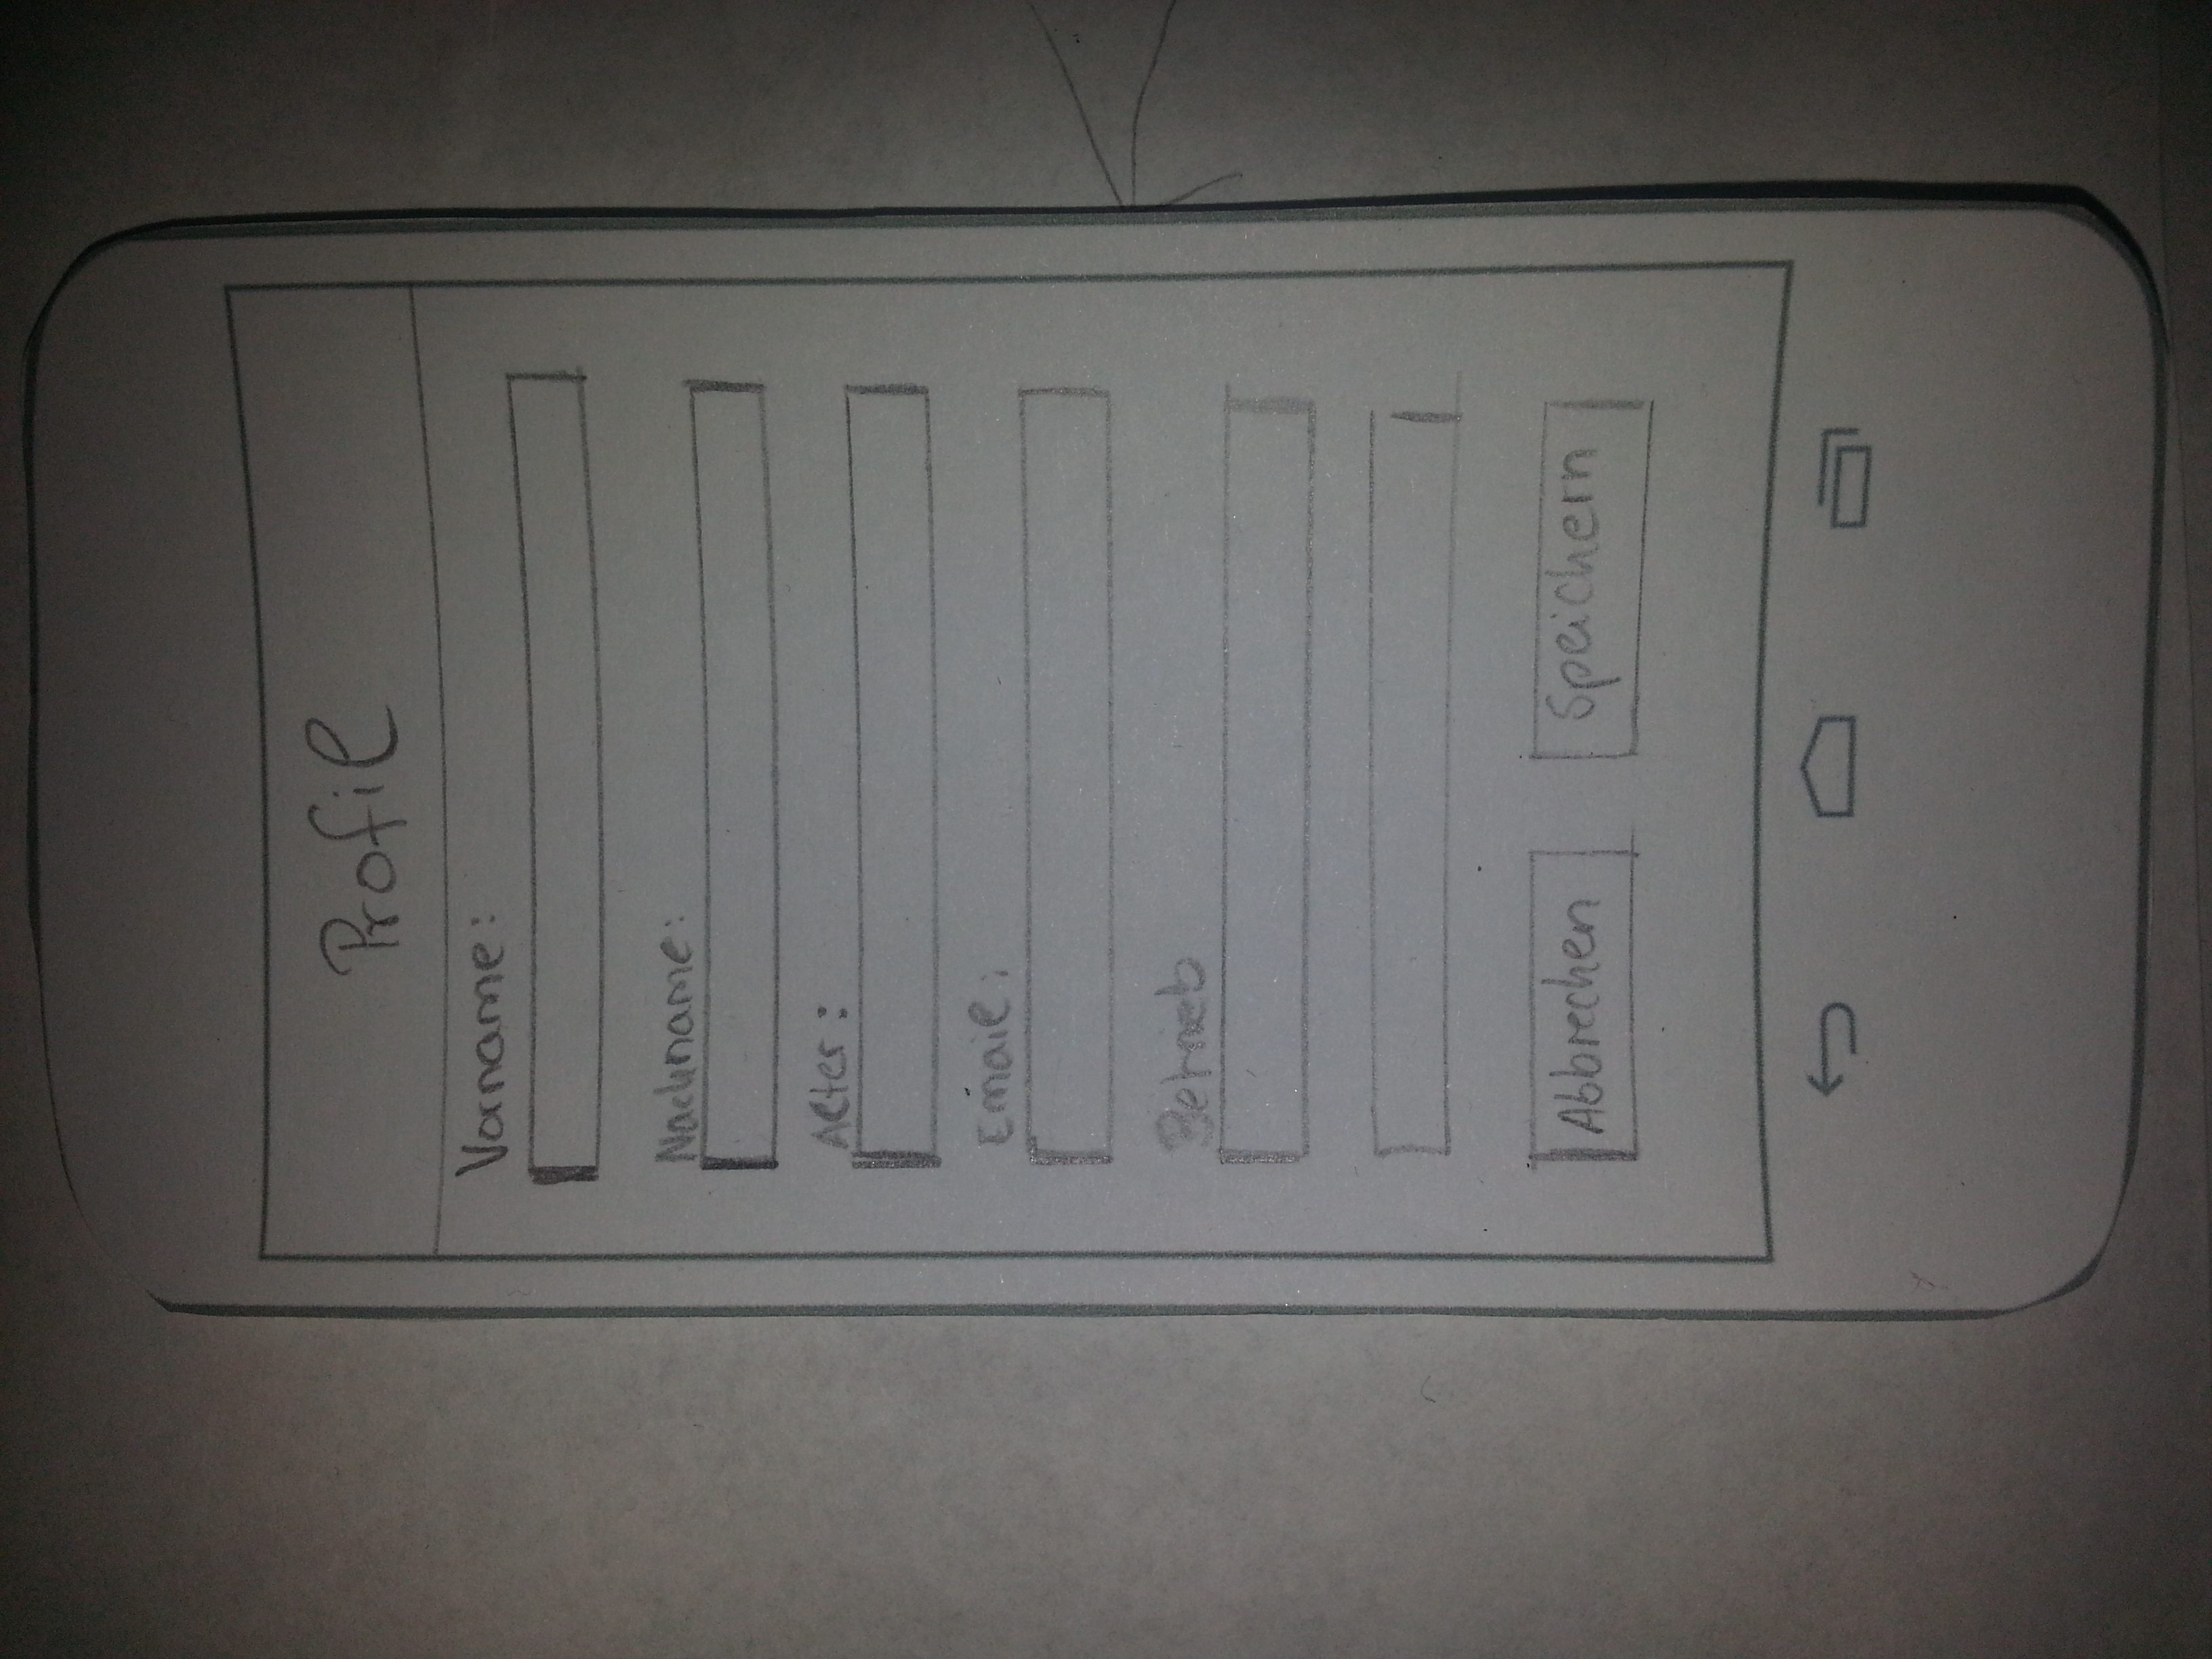 Profil
Vorname:
Nachname:
Alter:
Email:
Betrieb
Abbrechen
Speichern